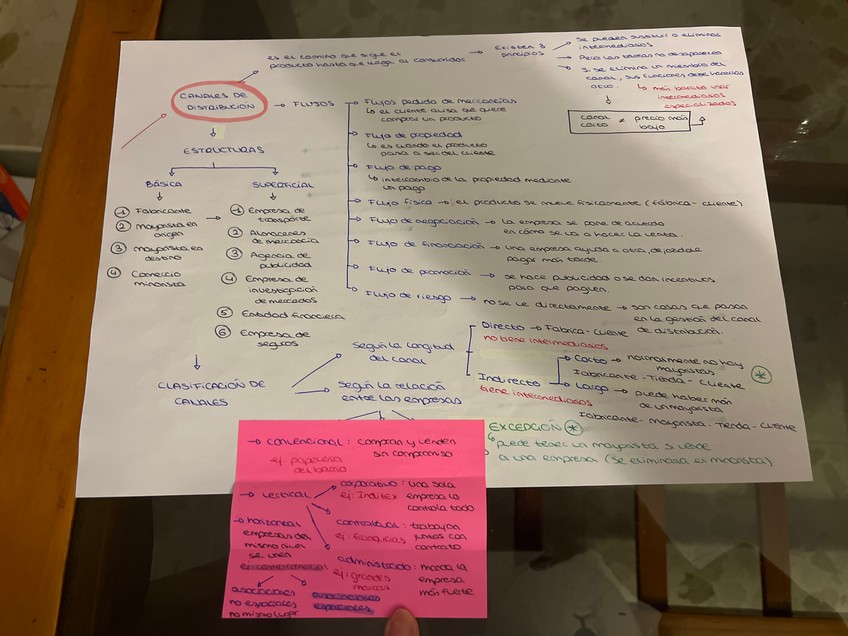 es el camino que sigue el
producto hasta que llega al consumidor
→ Existen 3
principios
→ Se pueden sustituir o eliminar
intermediarios
→ Pero las tareas no desaparecen
→ Si se elimina un miembro del
canal, sus funciones debe hacerlas
otro.
↳ más barato usar
intermediarios
especializados
canal
corto ≠ precio más
bajo
CANALES DE
DISTRIBUCIÓN
→ FLUJOS
Flujos pedido de mercancías
↳ el cliente avisa que quiere
comprar un producto
Flujo de propiedad
↳ es cuando el producto
pasa a ser del cliente
Flujo de pago
↳ intercambio de la propiedad mediante
un pago
Flujo física → el producto se mueve físicamente (fábrica - cliente)
Flujo de negociación → la empresa se pone de acuerdo
en cómo se va a hacer la venta.
Flujo de financiación → una empresa ayuda a otra, dejándole
pagar más tarde.
Flujo de promoción → se hace publicidad o se dan incentivos
para que paguen.
Flujo de riesgo → no se ve directamente → son cosas que pasan
en la gestión del canal
de distribución.
ESTRUCTURAS
BÁSICA
1 Fabricante
2 Mayorista en
origen
3 Mayorista en
destino
4 Comercio
minorista
SUPERFICIAL
1 Empresa de
transporte
2 Almacenes
de mercancía
3 Agencia de
publicidad
4 Empresa de
investigación
de mercados
5 Entidad financiera
6 Empresa de
seguros
CLASIFICACIÓN DE
CANALES
Según la longitud
del canal
Directo → Fabrica - cliente
no tiene intermediarios
Indirecto
tiene intermediarios
→ Corto → normalmente no hay
mayoristas
Fabricante - Tienda - cliente
→ Largo → puede haber más
de un mayorista
Fabricante - Mayorista - Tienda - Cliente
EXCEPCIÓN *
↳ puede tener un mayorista si vende
a una empresa (se eliminará el minorista)
Según la relación
entre las empresas
→ convencional: compran y venden
sin compromiso
ej: papelería
del barrio
→ vertical
corporativo: una sola
ej: Inditex empresa lo
controla todo
contractual: trabajan
ej: franquicias juntos con
contrato
administrado: manda la
ej: grandes empresa
marcas más fuerte
→ horizontal
empresas del
mismo nivel
se unen
ej: centro comercial
asociaciones
no espaciales
no mismo lugar
asociaciones
espaciales